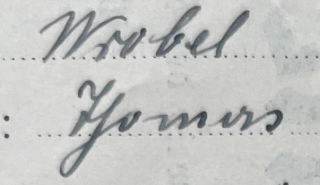 Wrobel
: Thomas